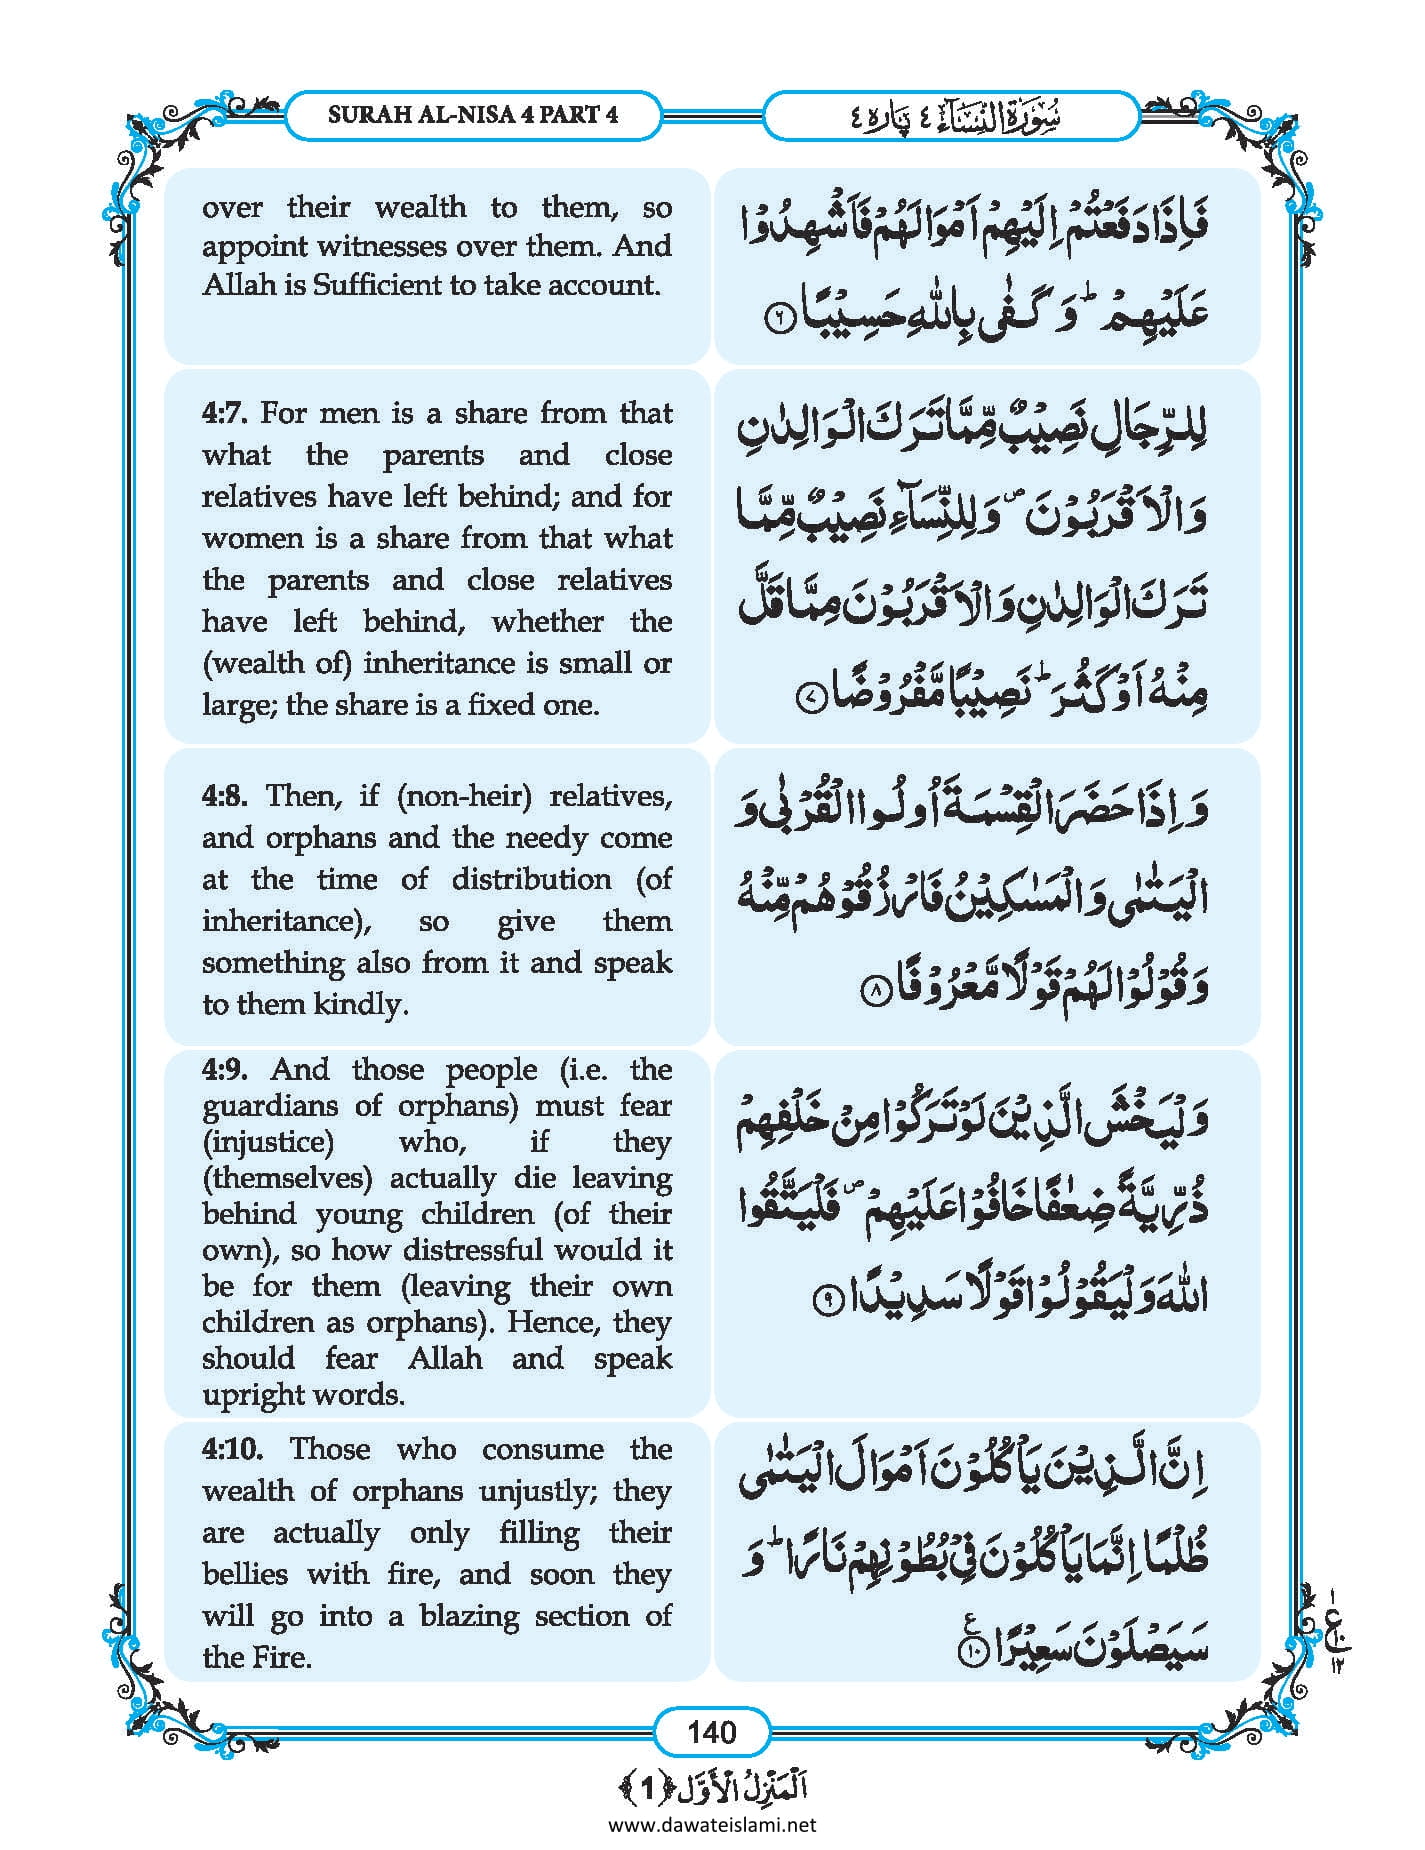 SURAH AL-NISA 4 PART 4
سُوْرَةُ النِّسَآء ٤ پَاره ٤
over their wealth to them, so
appoint witnesses over them. And
Allah is Sufficient to take account.
فَاِذَا دَفَعْتُمْ اِلَیْهِمْ اَمْوَالَهُمْ فَاَشْهِدُوْا
عَلَیْهِمْ ؕ وَ كَفٰى بِاللّٰهِ حَسِیْبًا ۝۶
4:7. For men is a share from that
what the parents and close
relatives have left behind; and for
women is a share from that what
the parents and close relatives
have left behind, whether the
(wealth of) inheritance is small or
large; the share is a fixed one.
لِلرِّجَالِ نَصِیْبٌ مِّمَّا تَرَكَ الْوَالِدٰنِ
وَ الْاَقْرَبُوْنَ ۪ وَ لِلنِّسَآءِ نَصِیْبٌ مِّمَّا
تَرَكَ الْوَالِدٰنِ وَ الْاَقْرَبُوْنَ مِمَّا قَلَّ
مِنْهُ اَوْ كَثُرَ ؕ نَصِیْبًا مَّفْرُوْضًا ۝۷
4:8. Then, if (non-heir) relatives,
and orphans and the needy come
at the time of distribution (of
inheritance), so give them
something also from it and speak
to them kindly.
وَ اِذَا حَضَرَ الْقِسْمَةَ اُولُوا الْقُرْبٰى وَ
الْیَتٰمٰى وَ الْمَسٰكِیْنُ فَارْزُقُوْهُمْ مِّنْهُ
وَ قُوْلُوْا لَهُمْ قَوْلًا مَّعْرُوْفًا ۝۸
4:9. And those people (i.e. the
guardians of orphans) must fear
(injustice) who, if they
(themselves) actually die leaving
behind young children (of their
own), so how distressful would it
be for them (leaving their own
children as orphans). Hence, they
should fear Allah and speak
upright words.
وَ لْیَخْشَ الَّذِیْنَ لَوْ تَرَكُوْا مِنْ خَلْفِهِمْ
ذُرِّیَّةً ضِعٰفًا خَافُوْا عَلَیْهِمْ ۪ فَلْیَتَّقُوا
اللّٰهَ وَ لْیَقُوْلُوْا قَوْلًا سَدِیْدًا ۝۹
4:10. Those who consume the
wealth of orphans unjustly; they
are actually only filling their
bellies with fire, and soon they
will go into a blazing section of
the Fire.
اِنَّ الَّذِیْنَ یَاْكُلُوْنَ اَمْوَالَ الْیَتٰمٰى
ظُلْمًا اِنَّمَا یَاْكُلُوْنَ فِیْ بُطُوْنِهِمْ نَارًا ؕ وَ
سَیَصْلَوْنَ سَعِیْرًا ۝۱۰ ع
١
ع ١٠
١٢
140
اَلْمَنْزِلُ الْاَوَّل ﴿1﴾
www.dawateislami.net